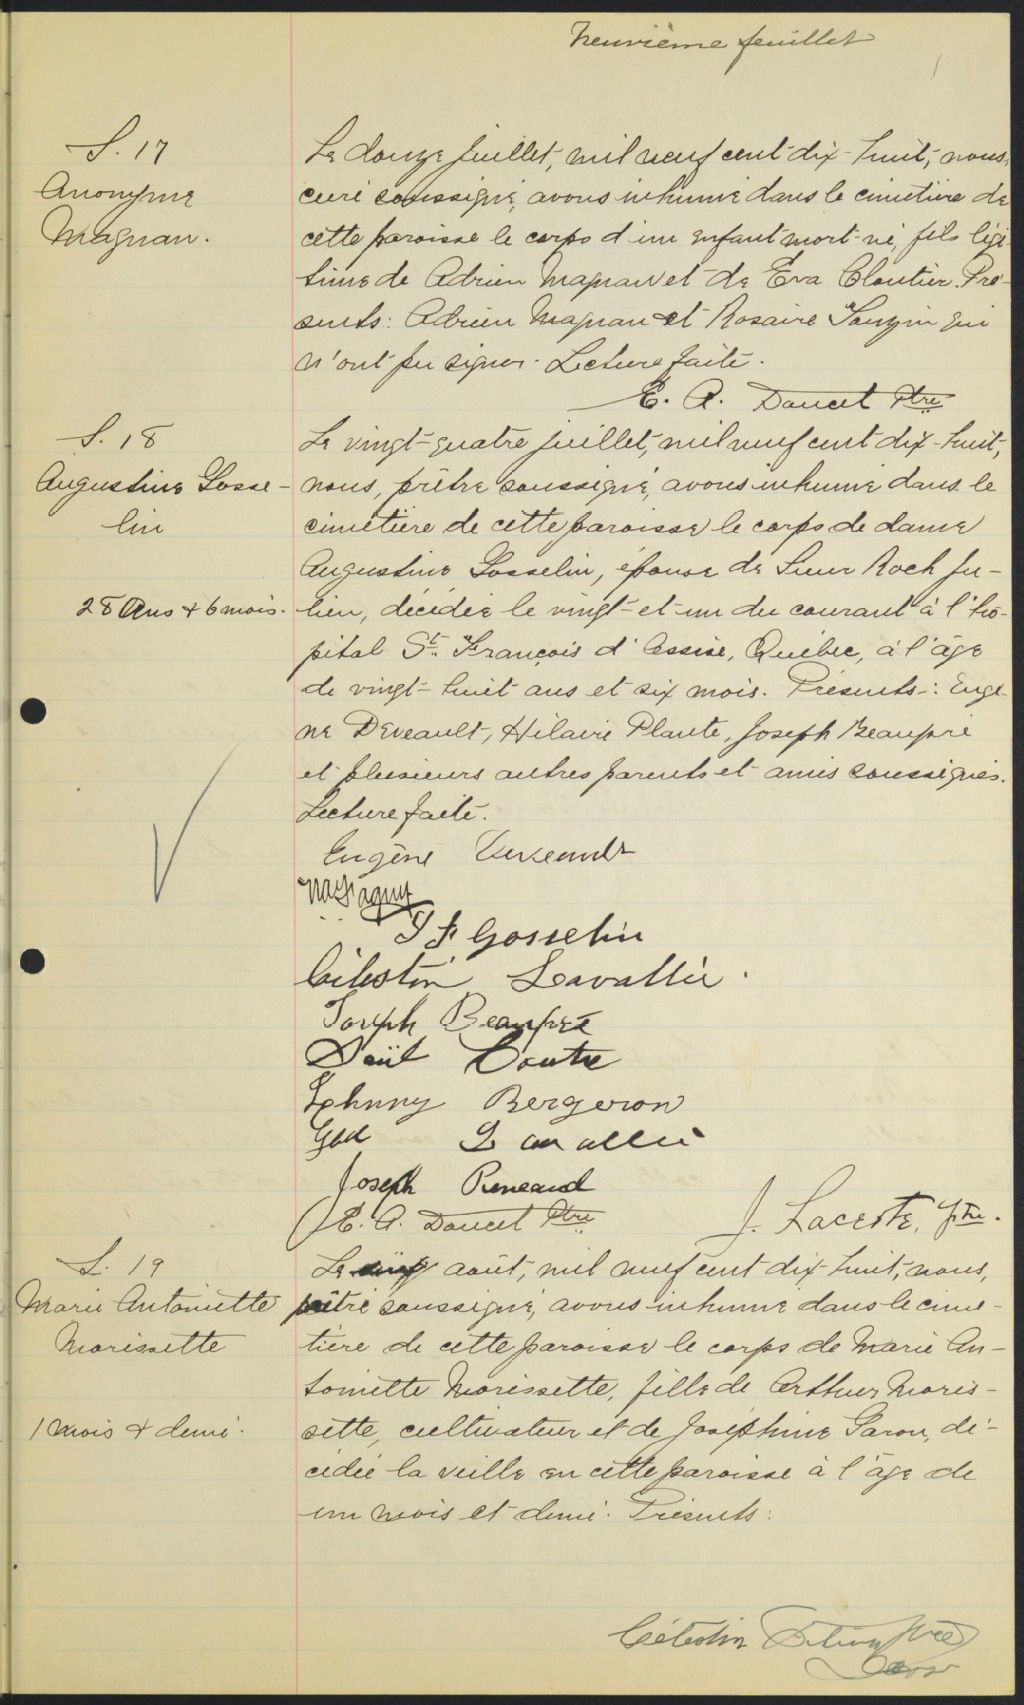 Neuvième feuillet
S. 17
Anonyme
Magnan.
Le douze juillet, mil neuf cent dix-huit, nous,
curé soussigné, avons inhumé dans le cimetière de
cette paroisse le corps d'un enfant mort-né, fils légi-
time de Adrien Magnan et de Eva Cloutier. Pré-
sents: Adrien Magnan et Rosaire qui
n'ont pu signer. Lecture faite.
E. A. Doucet Ptre
S. 18
Augustine Gosse-
lin
28 Ans & 6 mois.
Le vingt-quatre juillet, mil neuf cent dix-huit,
nous, prêtre soussigné, avons inhumé dans le
cimetière de cette paroisse le corps de dame
Augustine Gosselin, épouse de Sieur Roch Ju-
lien, décédée le vingt-et-un du courant à l'hô-
pital St. François d'Assise, Québec, à l'âge
de vingt-huit ans et six mois. Présents: Eugè-
ne Deveault, Hilaire Plante, Joseph Beaupré
et plusieurs autres parents et amis soussignés.
Lecture faite.
Eugène
J F Gosselin
Célestin Lavallée.
Joseph Beaupré
Johnny Bergeron
Joseph
E. A. Doucet Ptre
J. Lacerte, ptre.
S. 19
Marie Antoinette
Morissette
1 mois & demi.
Le août, mil neuf cent dix-huit, nous,
prêtre soussigné, avons inhumé dans le cime-
tière de cette paroisse le corps de Marie An-
toinette Morissette, fille de Arthur Moris-
sette, cultivateur et de Joséphine Garon, dé-
cédée la veille en cette paroisse à l'âge de
un mois et demi. Présents:
Célestin